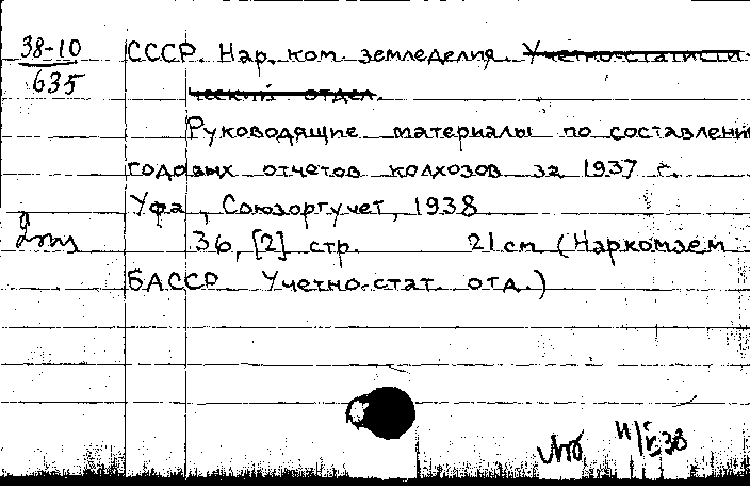 38-10
635
СССР. Нар. ком. земледелия. Учетно-статисти
ческий отдел.
Руководящие материалы по составлени
годовых отчетов колхозов за 1937 г.
Уфа, Союзоргучет, 1938
36, [2] стр. 21 см. (Наркомзем
БАССР. Учетно-стат. отд.)